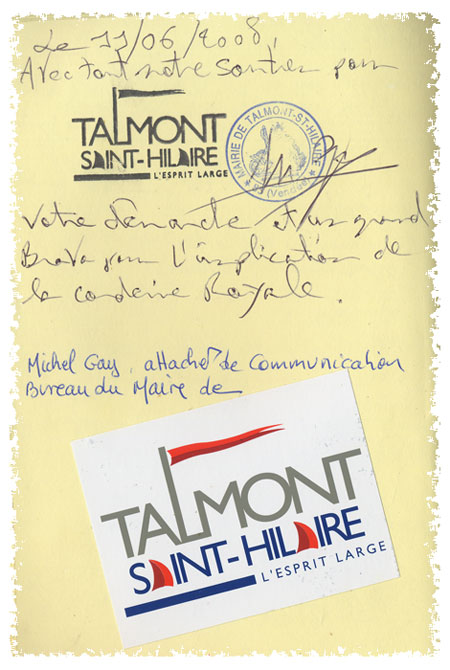 Le 11/06/2008,
Avec tout notre soutien pour
TALMONT
SAINT-HILAIRE
L'ESPRIT LARGE
MAIRIE DE TALMONT-ST-HILAIRE
(Vendée)
Votre demande et un grand
Bravo pour l'implication de
la corderie Royale.
Michel Gay, attaché de Communication
Bureau du Maire de
TALMONT
SAINT-HILAIRE
L'ESPRIT LARGE